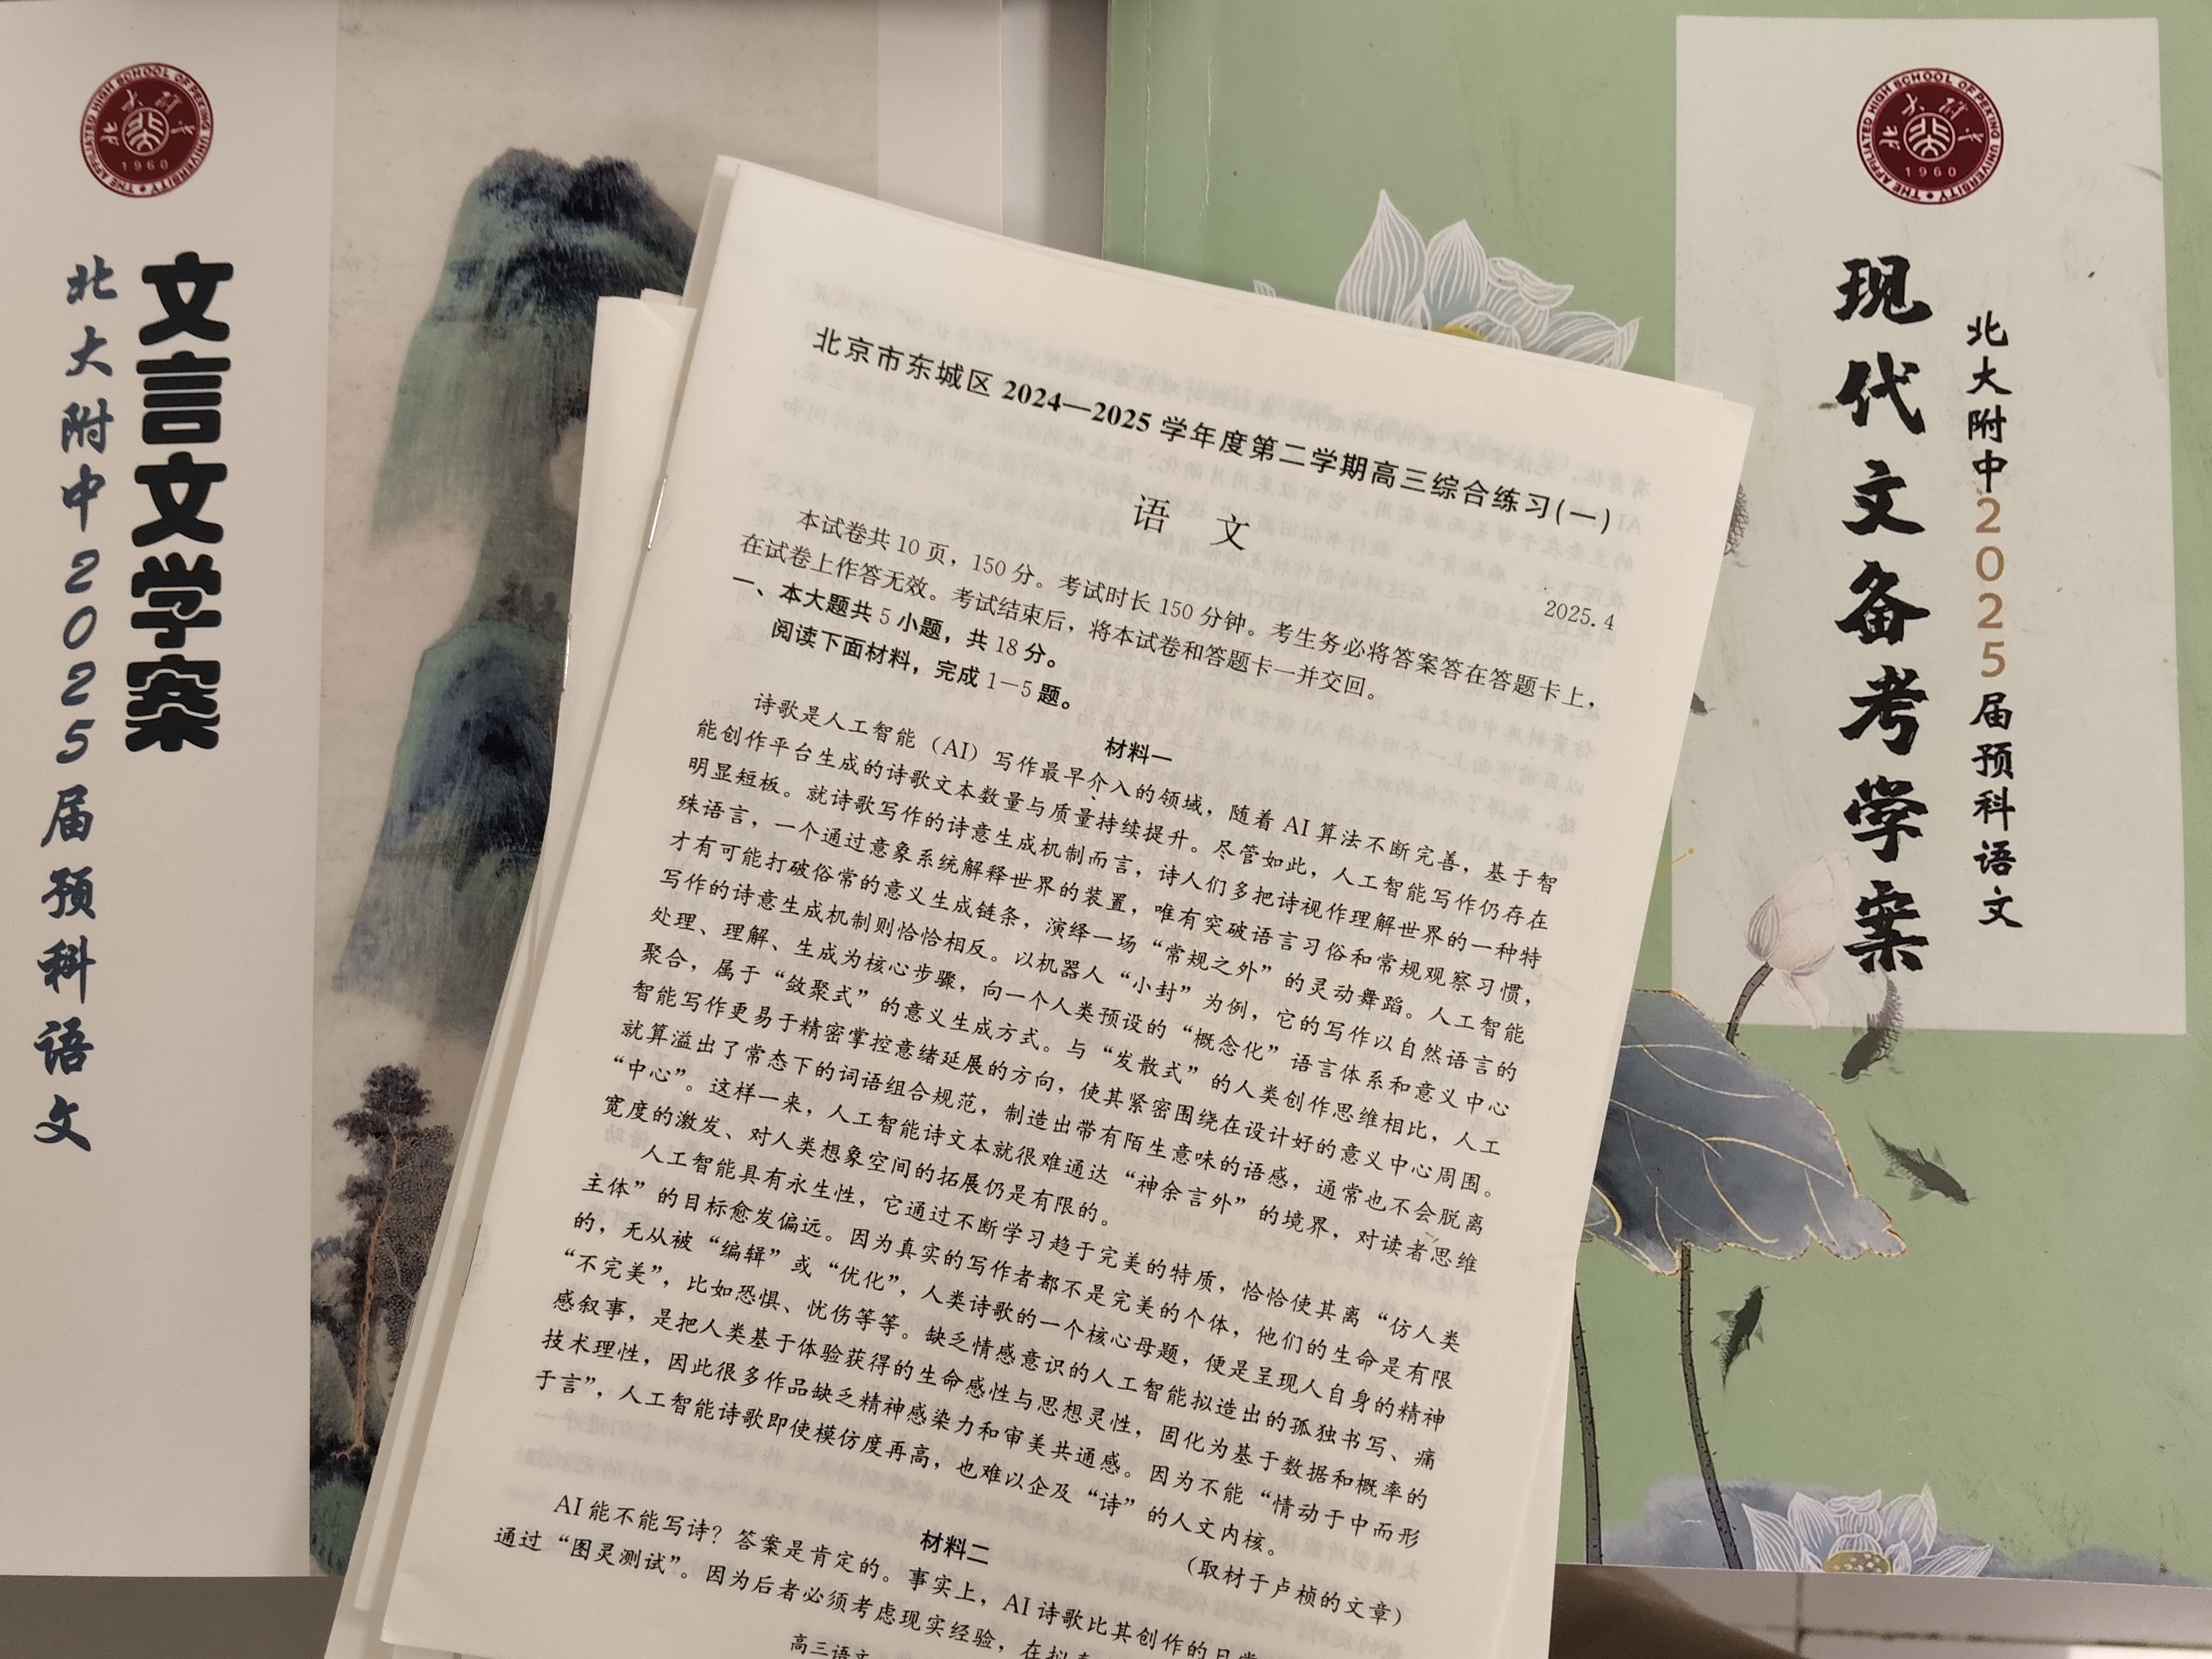 THE AFFILIATED HIGH SCHOOL OF PEKING UNIVERSITY
北大附中
1960
文言文学案
北大附中2025届预科语文
THE AFFILIATED HIGH SCHOOL OF PEKING UNIVERSITY
北大附中
1960
现代文备考学案
北大附中2025届预科语文
北京市东城区 2024—2025 学年度第二学期高三综合练习(一)
语 文
2025.4
本试卷共 10 页，150 分。考试时长 150 分钟。考生务必将答案答在答题卡上，
在试卷上作答无效。考试结束后，将本试卷和答题卡一并交回。
一、本大题共 5 小题，共 18 分。
阅读下面材料，完成 1—5 题。
材料一
诗歌是人工智能（AI）写作最早介入的领域，随着 AI 算法不断完善，基于智
能创作平台生成的诗歌文本数量与质量持续提升。尽管如此，人工智能写作仍存在
明显短板。就诗歌写作的诗意生成机制而言，诗人们多把诗视作理解世界的一种特
殊语言，一个通过意象系统解释世界的装置，唯有突破语言习俗和常规观察习惯，
才有可能打破俗常的意义生成链条，演绎一场“常规之外”的灵动舞蹈。人工智能
写作的诗意生成机制则恰恰相反。以机器人“小封”为例，它的写作以自然语言的
处理、理解、生成为核心步骤，向一个人类预设的“概念化”语言体系和意义中心
聚合，属于“敛聚式”的意义生成方式。与“发散式”的人类创作思维相比，人工
智能写作更易于精密掌控意绪延展的方向，使其紧密围绕在设计好的意义中心周围。
就算溢出了常态下的词语组合规范，制造出带有陌生意味的语感，通常也不会脱离
“中心”。这样一来，人工智能诗文本就很难通达“神余言外”的境界，对读者思维
宽度的激发、对人类想象空间的拓展仍是有限的。
人工智能具有永生性，它通过不断学习趋于完美的特质，恰恰使其离“仿人类
主体”的目标愈发偏远。因为真实的写作者都不是完美的个体，他们的生命是有限
的，无从被“编辑”或“优化”，人类诗歌的一个核心母题，便是呈现人自身的精神
“不完美”，比如恐惧、忧伤等等。缺乏情感意识的人工智能拟造出的孤独书写、痛
感叙事，是把人类基于体验获得的生命感性与思想灵性，固化为基于数据和概率的
技术理性，因此很多作品缺乏精神感染力和审美共通感。因为不能“情动于中而形
于言”，人工智能诗歌即使模仿度再高，也难以企及“诗”的人文内核。
(取材于卢桢的文章)
材料二
AI 能不能写诗？答案是肯定的。事实上，AI 诗歌比其创作的日常
通过“图灵测试”。因为后者必须考虑现实经验，在拟
高三语文